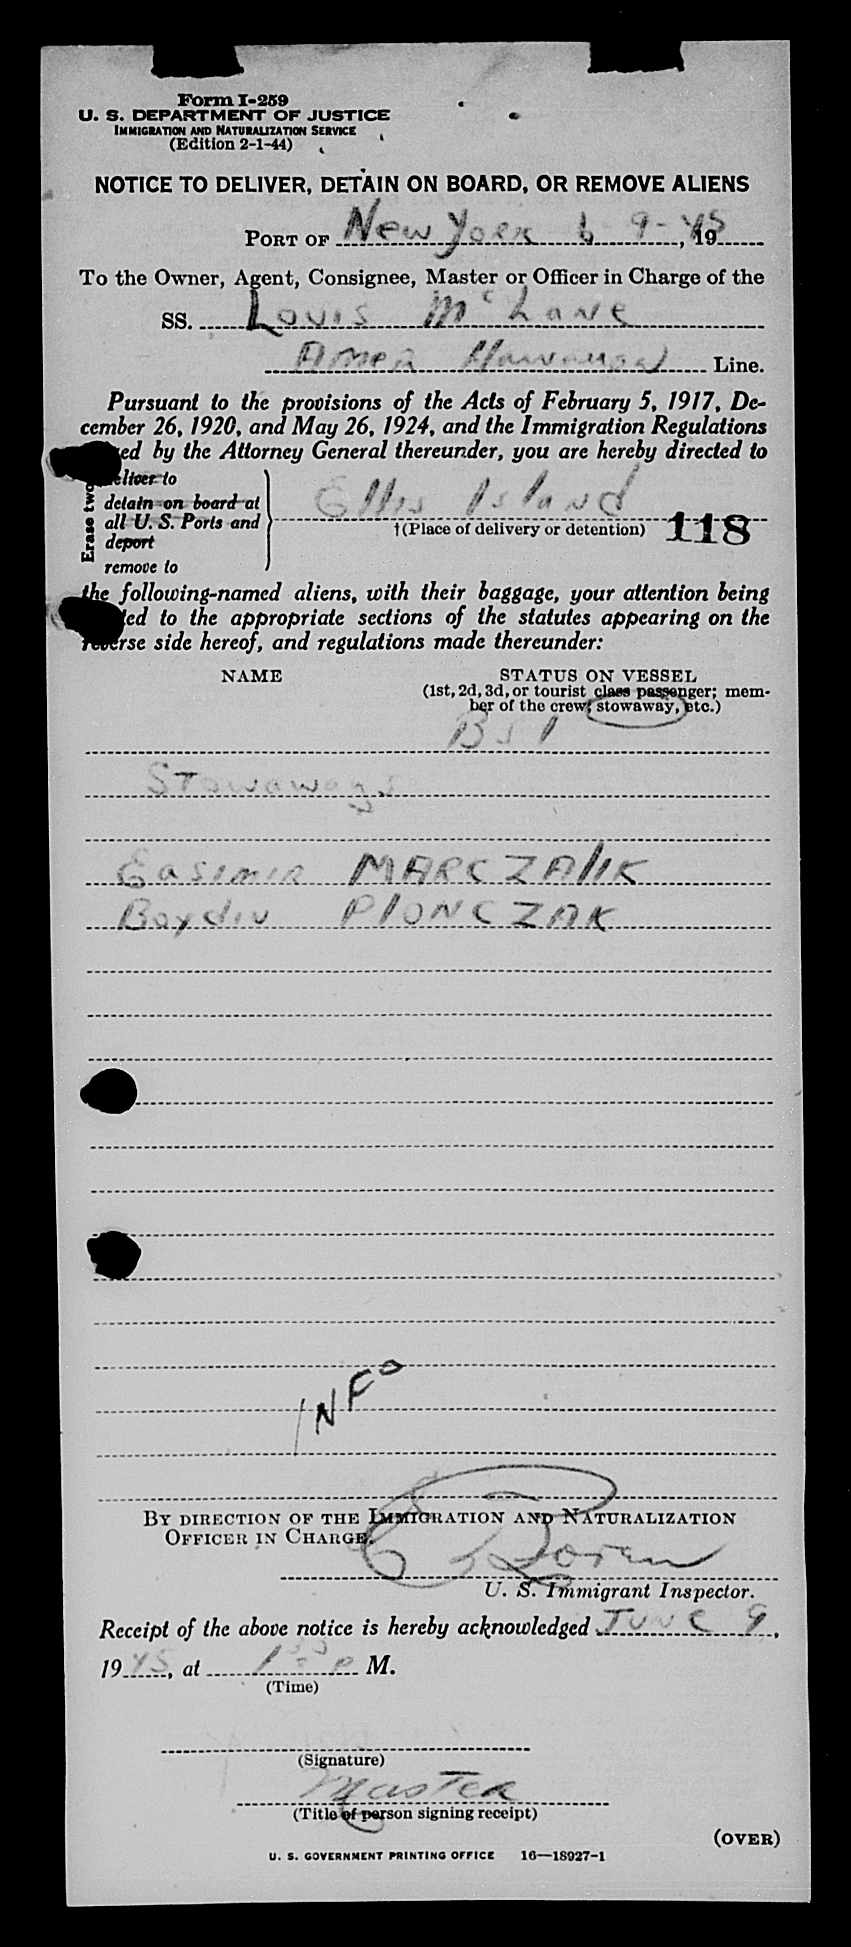 Form I-259
U. S. DEPARTMENT OF JUSTICE
IMMIGRATION AND NATURALIZATION SERVICE
(Edition 2-1-44)
NOTICE TO DELIVER, DETAIN ON BOARD, OR REMOVE ALIENS
PORT OF New York 6 9-45, 19
To the Owner, Agent, Consignee, Master or Officer in Charge of the
SS. Louis McLane
Amer Hawaiian Line.
Pursuant to the provisions of the Acts of February 5, 1917, De-
cember 26, 1920, and May 26, 1924, and the Immigration Regulations
by the Attorney General thereunder, you are hereby directed to
Erase two
deliver to
detain on board at
all U. S. Ports and
deport
remove to
Ellis Island
†(Place of delivery or detention) 118
the following-named aliens, with their baggage, your attention being
to the appropriate sections of the statutes appearing on the
reverse side hereof, and regulations made thereunder:
NAME STATUS ON VESSEL
(1st, 2d, 3d, or tourist class passenger; mem-
ber of the crew; stowaway, etc.)
BSI
Stowaways
Casimir MARCZALIK
Boydin PIONCZAK
INFO
BY DIRECTION OF THE IMMIGRATION AND NATURALIZATION
OFFICER IN CHARGE.
U. S. Immigrant Inspector.
Receipt of the above notice is hereby acknowledged June 9,
1945, at P M.
(Time)
(Signature)
Master
(Title of person signing receipt)
(OVER)
U. S. GOVERNMENT PRINTING OFFICE 16—18927-1